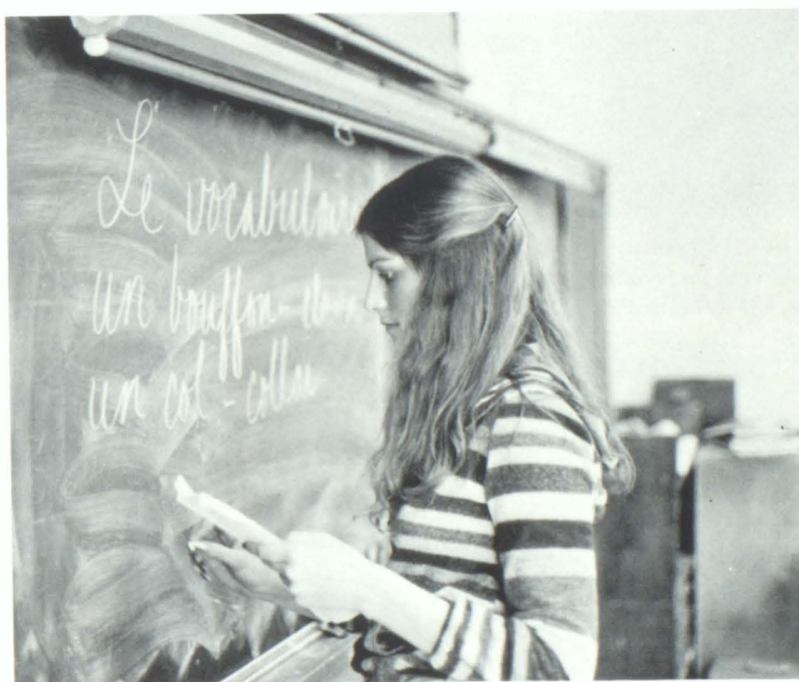 Le vocabulaire
un bouffon-clown
un col-collar